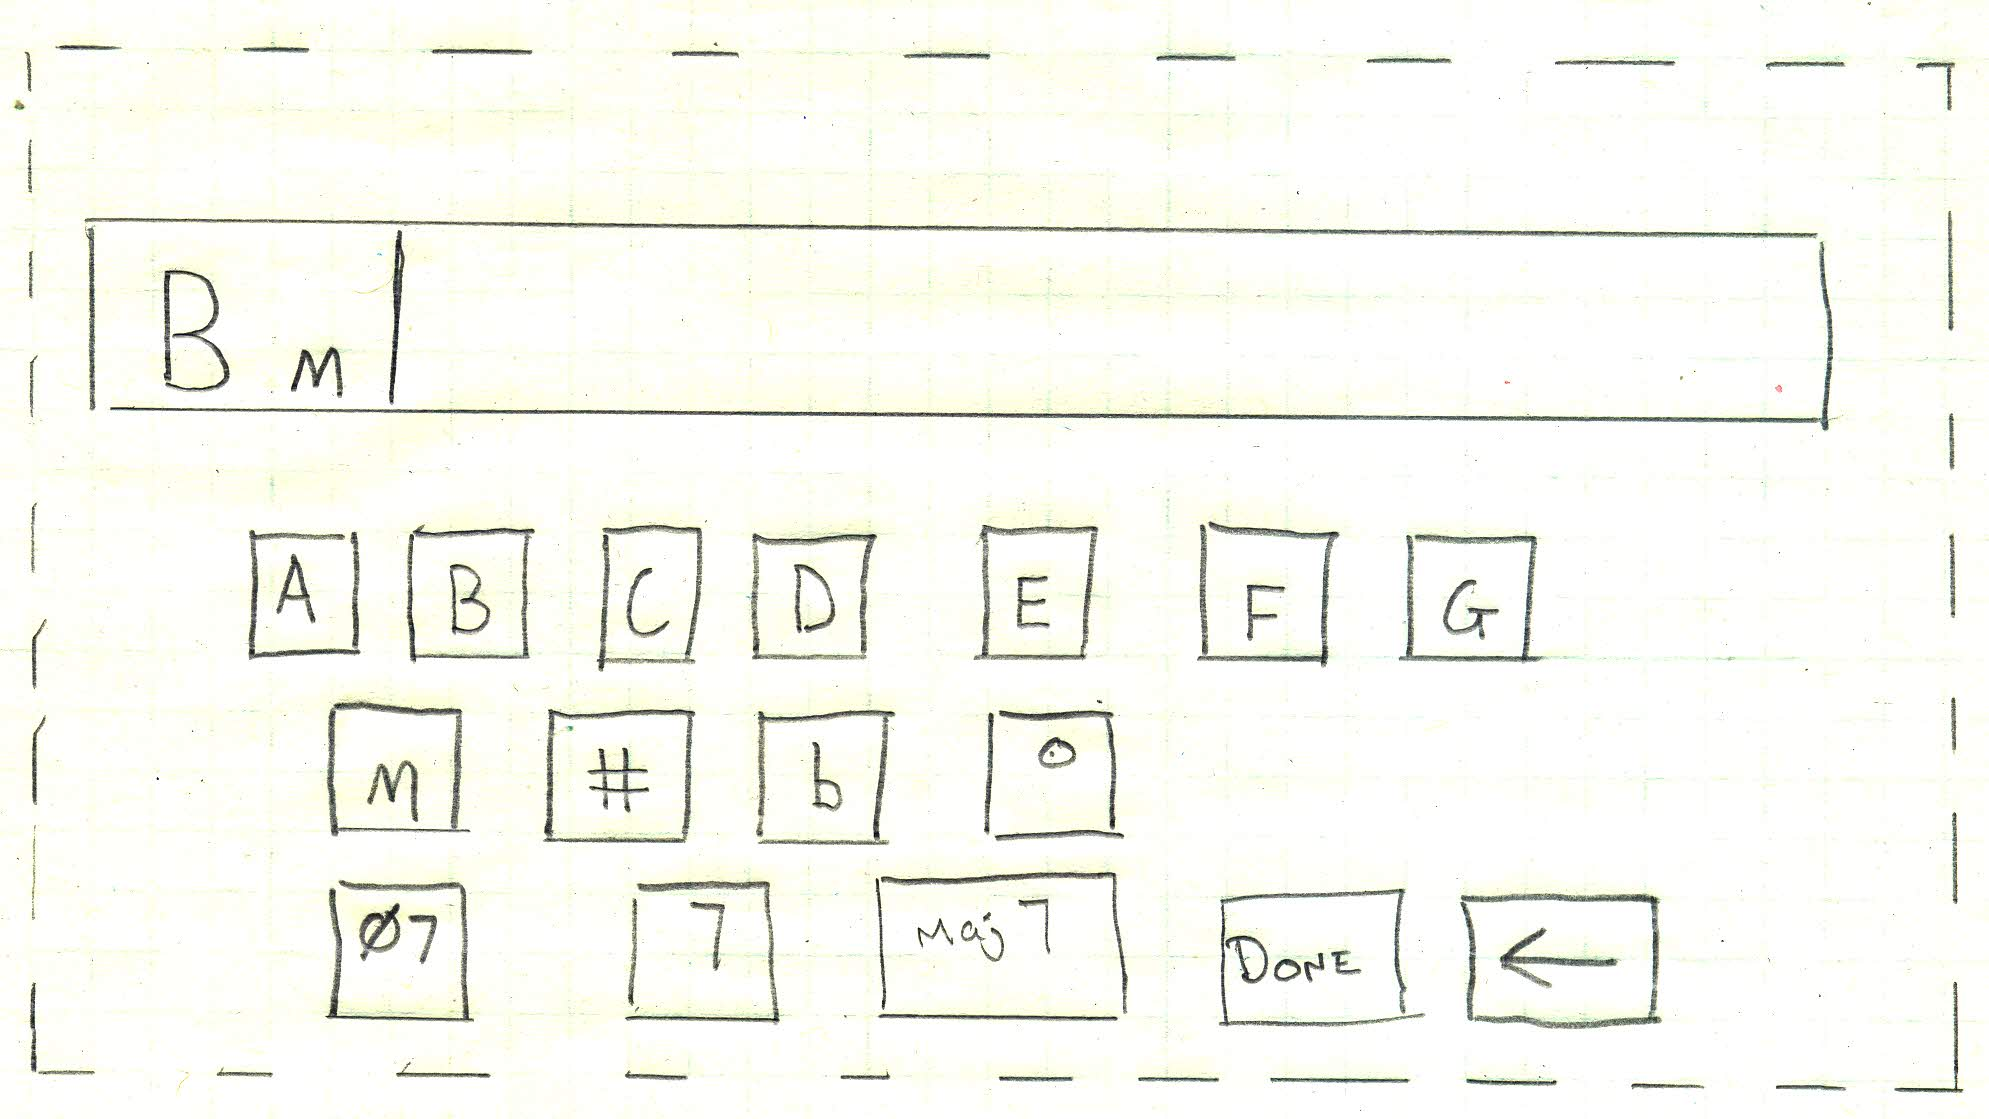 B m
A B C D E F G
m # b °
Ø7 7 Maj7 DONE ←